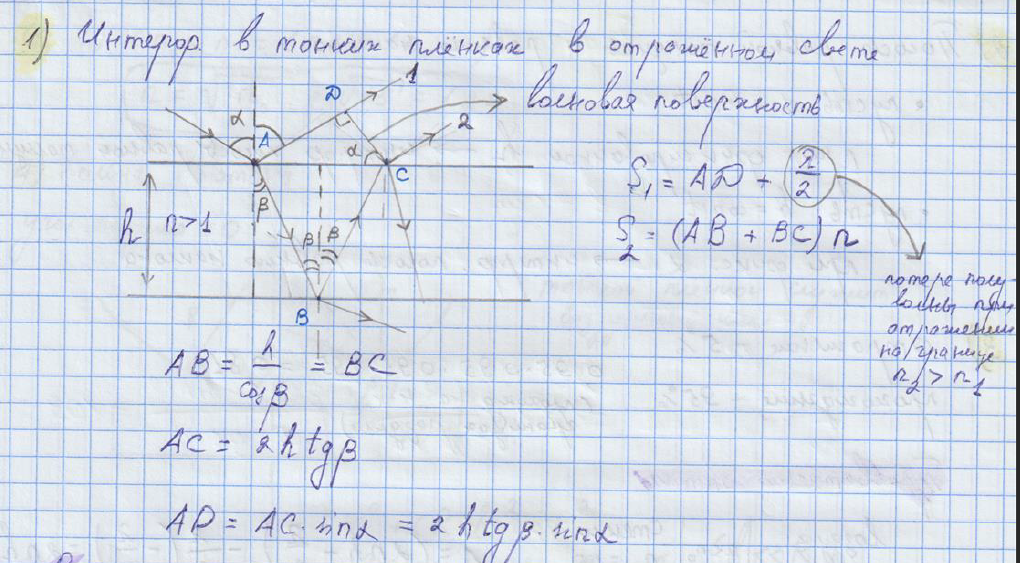 1) Интерфер. в тонких плёнках в отражённом свете
D 1
волновая поверхность
α A α 2
C
β
h n>1
β β
B
S₁ = AD + λ/2
S₂ = (AB + BC) n
потеря полу-
волны при
отражении
на границе
n₂ > n₁
AB = h/cosβ = BC
AC = 2h tgβ
AD = AC · sinα = 2h tgβ · sinα